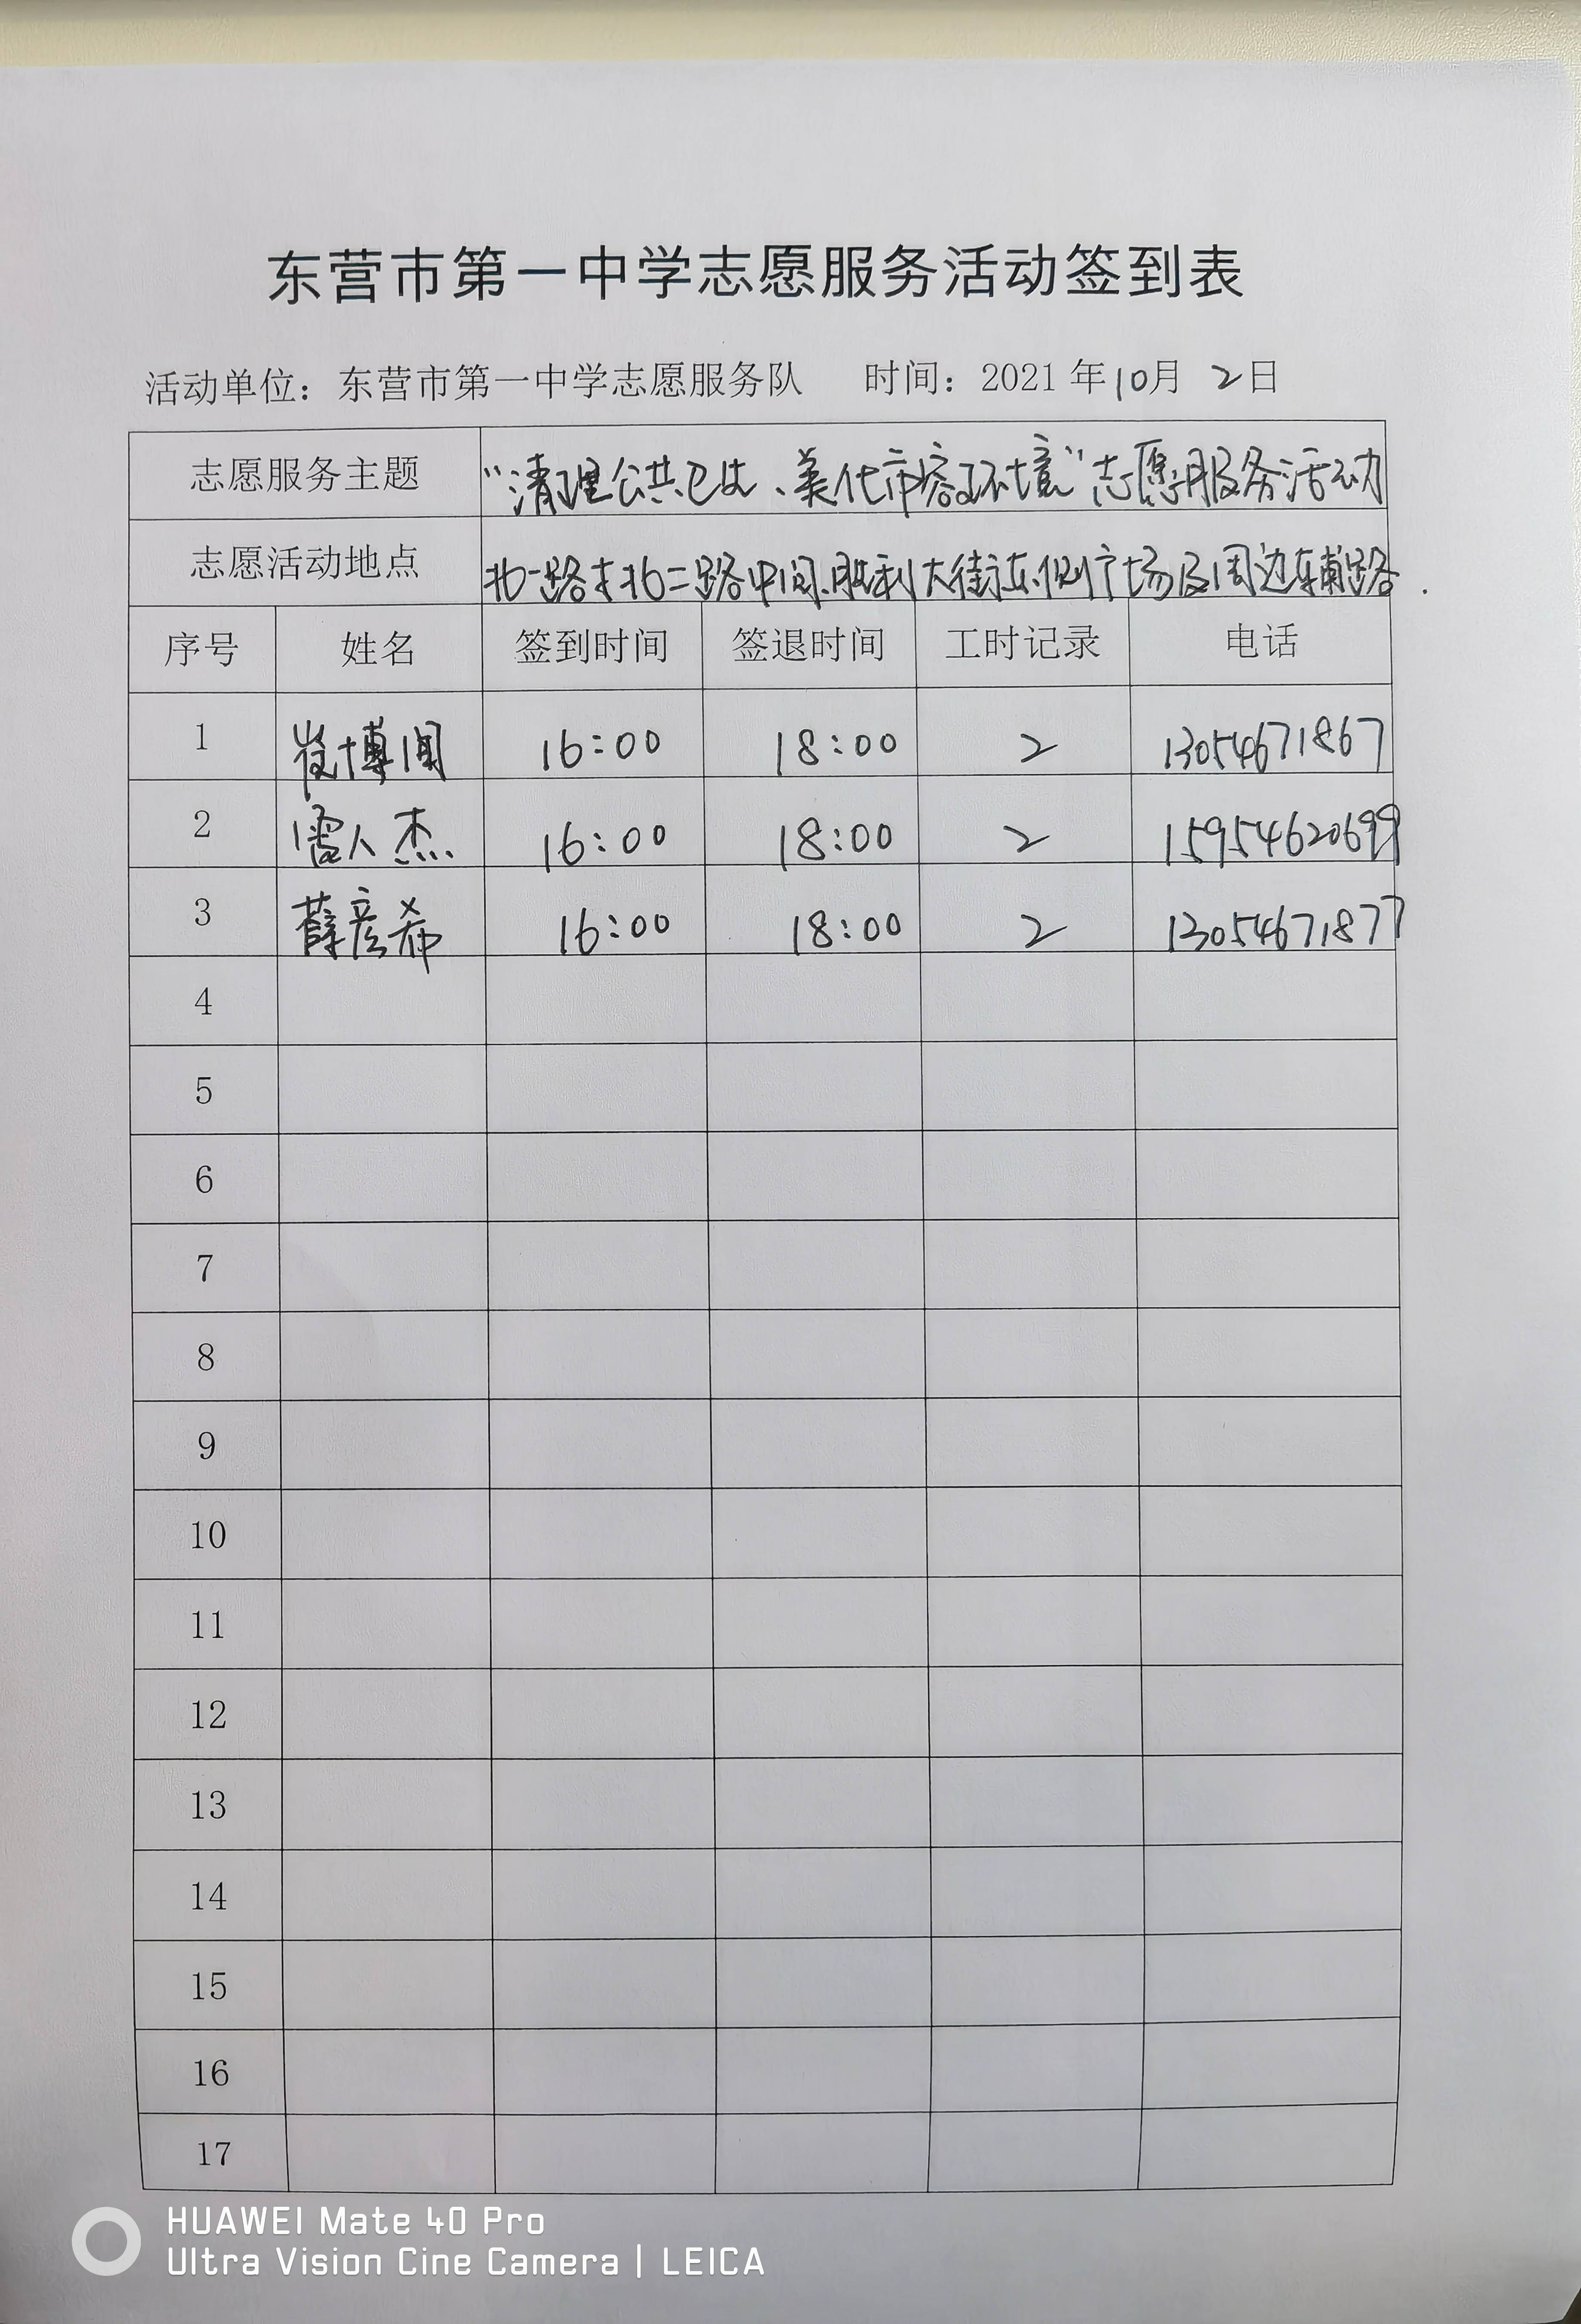 东营市第一中学志愿服务活动签到表
活动单位：东营市第一中学志愿服务队 时间：2021年10月 2日
志愿服务主题 “清理公共卫生、美化市容环境”志愿服务活动
志愿活动地点 北一路与北二路中间、胜利大街东侧广场及周边车辅路.
序号 姓名 签到时间 签退时间 工时记录 电话
1 崔博闻 16:00 18:00 2 13054671867
2 雷人杰 16:00 18:00 2 15954620699
3 薛彦希 16:00 18:00 2 13054671877
4
5
6
7
8
9
10
11
12
13
14
15
16
17
HUAWEI Mate 40 Pro
Ultra Vision Cine Camera | LEICA